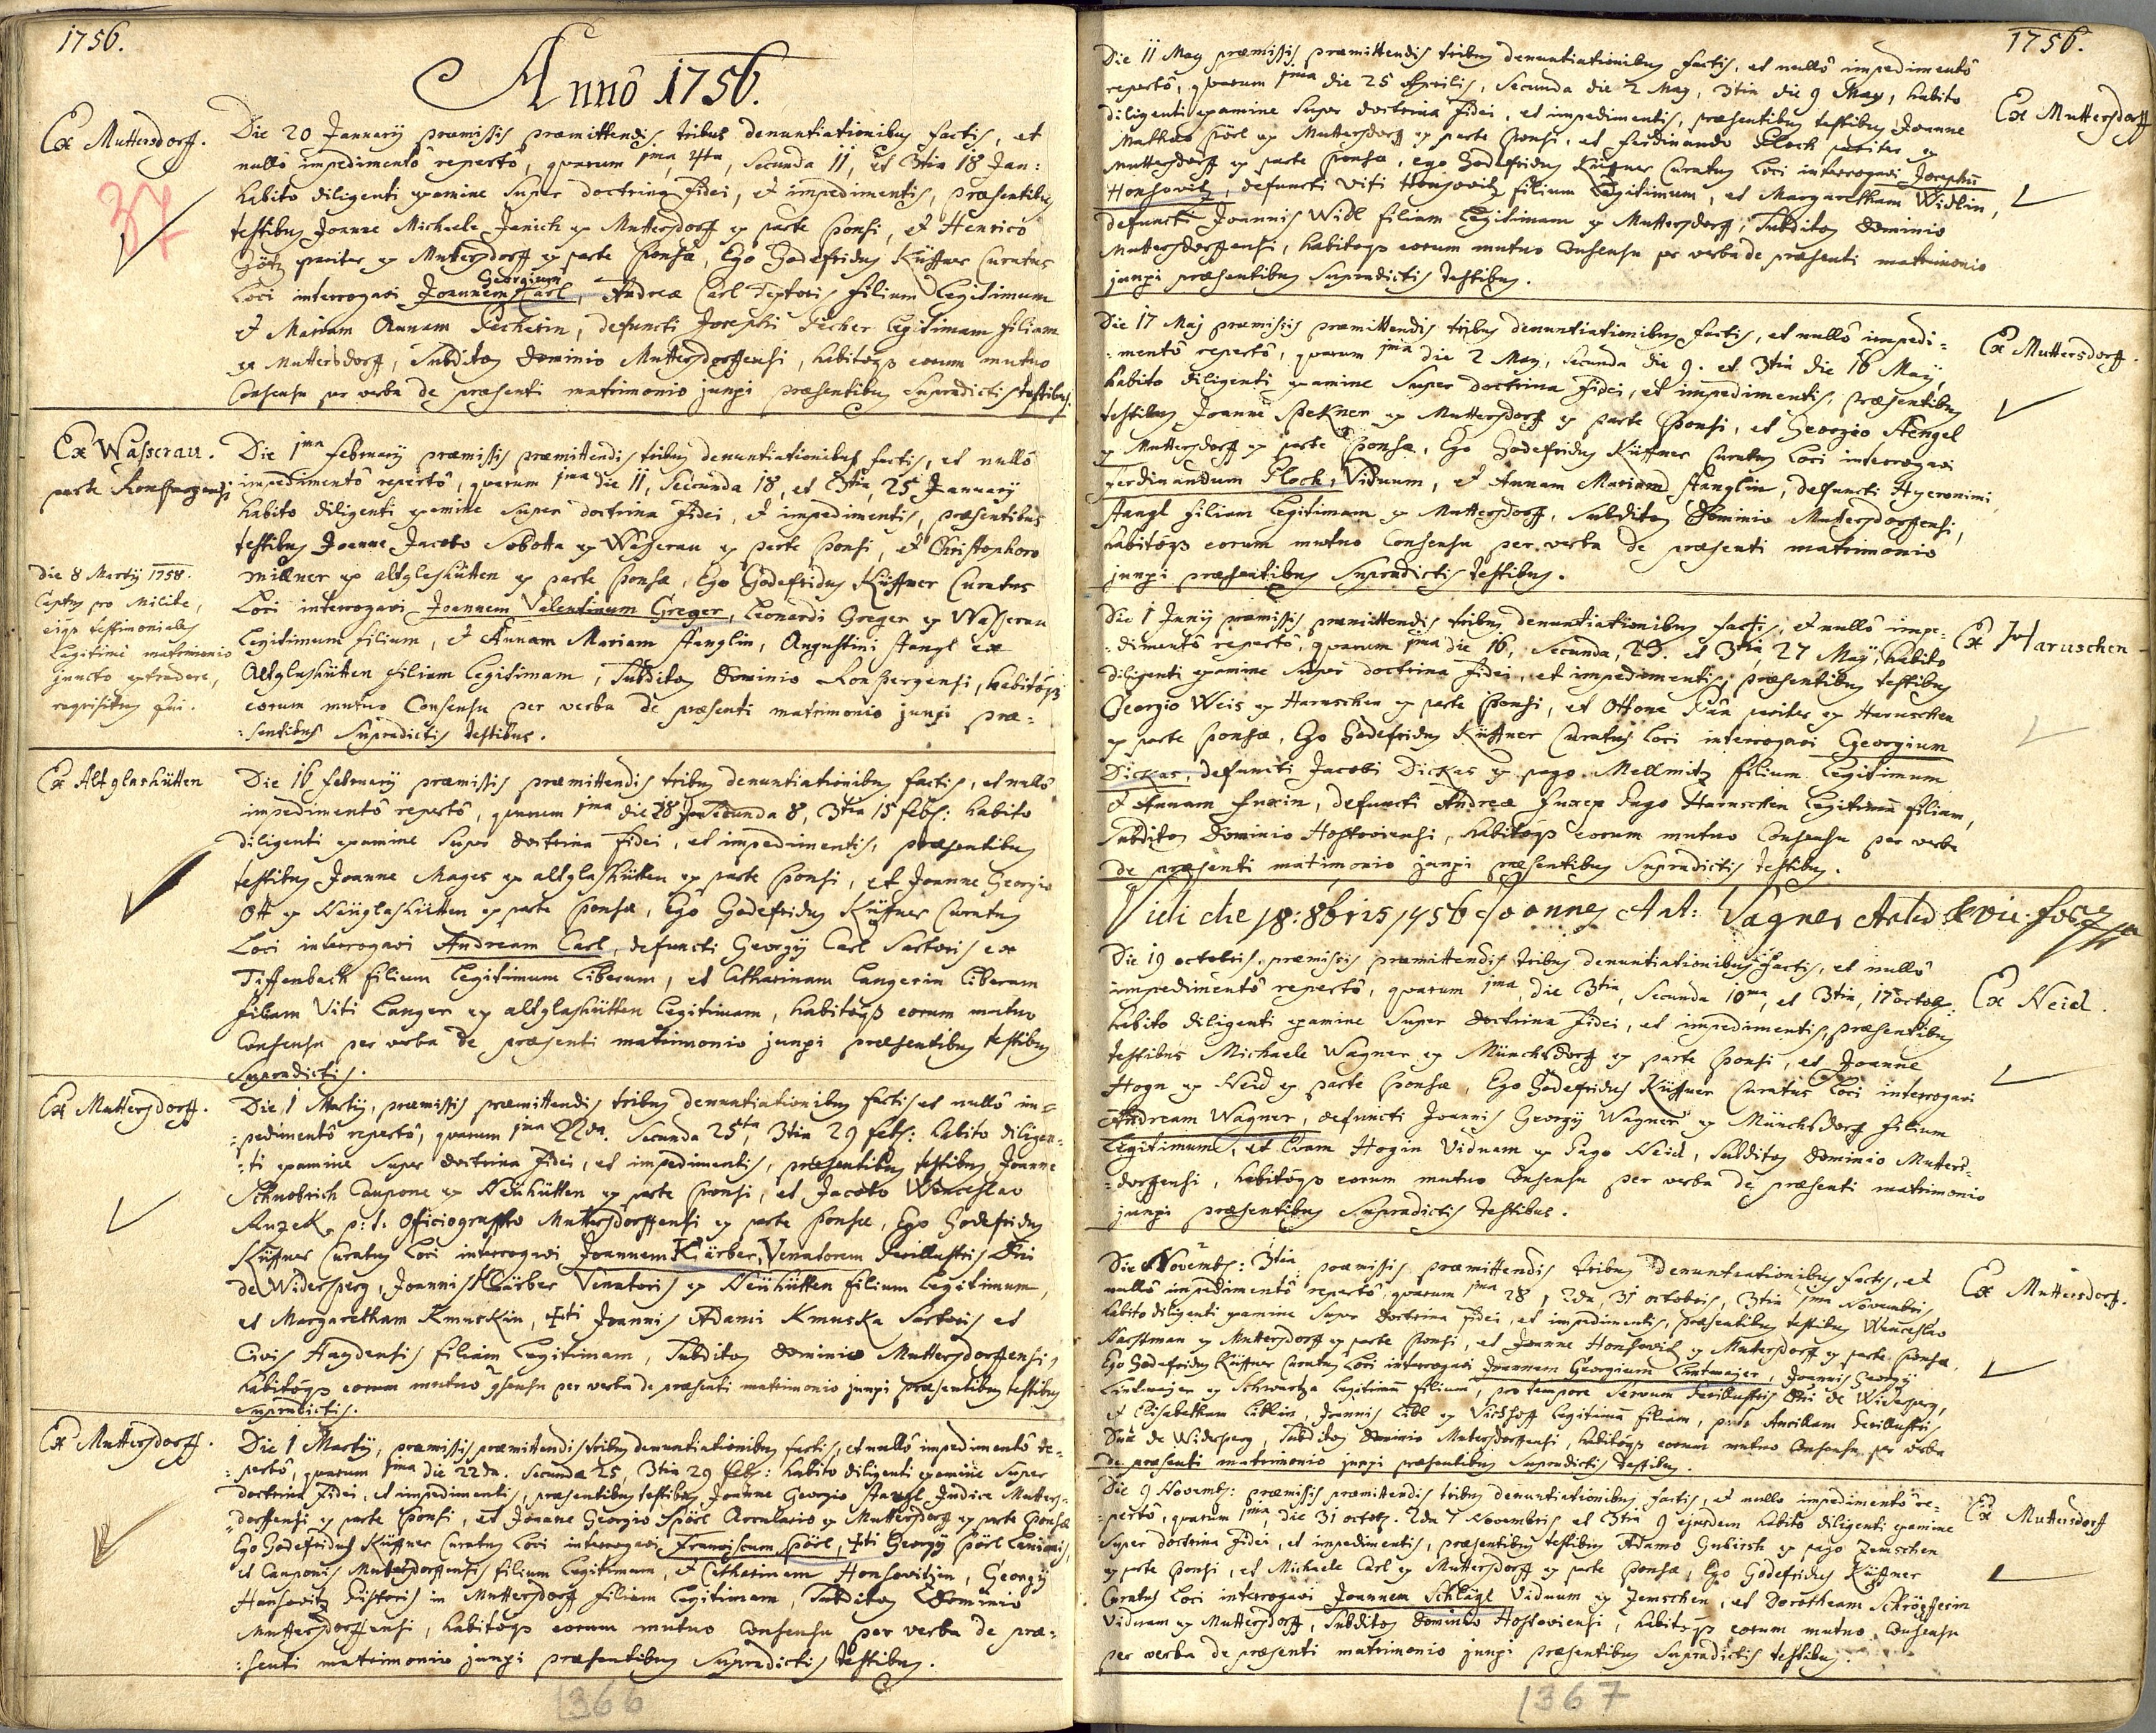 1756.
Annô 1756.
Ex Muttersdorff.
37
Die 20 Januarÿ præmissis præmittendis tribus denuntiationibus factis, et
nullô impedimentô repertô, quarum 1ma 4ta, Secunda 11, et 3tia 18 Jan:
habito diligenti examine super doctrina Fidei, et impedimentis, præsentibus
testibus Joanne Michaele Janich ex Muttersdorf ex parte sponsi, et Henrico
Götz pariter ex Muttersdorff ex parte sponsæ, Ego Godefridus Küffner Curatus
Georgium
Loci interrogavi Joannem Carl, Andreæ Carl Textoris filium Legitimum
et Mariam Annam Fecherin, defuncti Josephi Fecher legitimam filiam
ex Muttersdorff, Subditos Dominio Muttersdorffensi, habitoqs eorum mutuo
Consensu per verba de præsenti matrimonio junxi præsentibus supradictis testibus.
Ex Wasserau.
parte Ronspergensi
Die 1ma Februarÿ præmissis præmittendis tribus denuntiationibus factis, et nullô
impedimentô repertô, quarum 1ma die 11, Secunda 18, et 3tia 25 Januarÿ
habito diligenti examine super doctrina Fidei, et impedimentis, præsentibus
testibus Joanne Jacobo Sobotta ex Wasserau ex parte sponsi, et Christophoro
Millner ex altglashütten ex parte sponsæ, Ego Godefridus Küffner Curatus
Loci interrogavi Joannem Valentinum Greger, Leonardi Greger ex Wasserau
Legitimum filium, et Annam Mariam Stanglin, Augustini Stangl ex
Altglashütten filiam Legitimam, Subditos Dominio Ronspergensi, habitoqs
eorum mutuo Consensu per verba de præsenti matrimonio junxi præ=
:sentibus Supradictis testibus.
Die 8 Martÿ 1758.
Captus pro Milite,
eiqs testimoniales
Legitimi matrimonio
juncto extradere,
requisitus fui.
Ex Altglashütten
Die 16 Februarÿ præmissis præmittendis tribus denuntiationibus factis, et nullô
impedimentô repertô, quarum 1ma die 28 Jan Secunda 8, 3tia 15 Feb: habito
diligenti examine super doctrina Fidei, et impedimentis, præsentibus
testibus Joanne Mages ex altglashütten ex parte sponsi, et Joanne Georgio
Ott ex Neüglashütten ex parte sponsæ, Ego Godefridus Küffner Curatus
Loci interrogavi Andream Carl, defuncti Georgÿ Carl Sartoris ex
Tiffenbach filium legitimum Liberum, et Catharinam Langerin Liberam
filiam Viti Langer ex altglashütten Legitimam, habitoqs eorum mutuo
Consensu per verba de præsenti matrimonio junxi præsentibus testibus
Supradictis.
Ex Muttersdorff.
Die 1 Martÿ, præmissis præmittendis tribus denuntiationibus factis et nullô im=
:pedimentô repertô, quarum 1ma 22da. Secunda 25ta, 3tia 29 feb: habito diligen=
:ti examine super doctrina Fidei, et impedimentis, præsentibus testibus Joanne
Schnobrich Caupone ex Neühütten ex parte sponsi, et Jacobo Wenceslao
Ruzek p:t: Officiographo Muttersdorffensi ex parte sponsæ, Ego Godefridus
Küffner Curatus Loci interrogavi Joannem Kärber, Venatorem Perillustris Dni
de Widersperg, Joannis Kärber Venatoris ex Neühütten filium legitimum,
et Margaretham Kmuskin, ✝ti Joannis Adami Kmuska Sartoris et
Civis Haydensis filiam Legitimam, Subditos Dominio Muttersdorffensi,
habitoqs eorum mutuo 9sensu per verba de præsenti matrimonio junxi præsentibus testibus
supradictis.
Ex Muttersdorff.
Die 1 Martÿ, præmissis præmittendis tribus denuntiationibus factis, et nullô impedimentô re=
:pertô, quarum 1ma die 22da. Secunda 25, 3tia 29 feb: habito diligenti examine super
doctrina Fidei, et impedimentis, præsentibus testibus Joanne Georgio Stangl Judice Mutters=
:dorffensi ex parte sponsi, et Joanne Georgio Spörl Arculario ex Muttersdorff ex parte sponsæ
Ego Godefridus Küffner Curatus Loci interrogavi Franciscum Spörl, ✝ti Georgÿ Spörl Lanionis,
et Cauponis Muttersdorffensis filium Legitimum, et Catharinam Honsovitzin, Georgÿ
Honsovitz Pistoris in Muttersdorff filiam Legitimam, Subditos Dominio
Muttersdorffensi, habitoqs eorum mutuo Consensu per verba de præ=
:senti matrimonio junxi præsentibus supradictis testibus.
366
1756.
Die 11 May præmissis præmittendis tribus denuntiationibus factis, et nullô impedimentô
repertô, quarum 1ma die 25 Aprilis, Secunda die 2 May, 3tia die 9 May, habito
diligenti examine super doctrina Fidei, et impedimentis, præsentibus testibus Joanne
Mathæo Spörl ex Muttersdorff ex parte sponsi, et Ferdinando Plock pariter ex
Muttersdorff ex parte sponsæ, ego Godefridus Küffner Curatus Loci interrogavi Josephū
Honsovitz, defuncti Viti Honsovitz filium Legitimum, et Margaretham Widlin,
defuncti Joannis Widl filiam Legitimam ex Muttersdorff, Subditos Dominio
Muttersdorffensi, habitoqs eorum mutuo Consensu per verba de præsenti matrimonio
junxi præsentibus supradictis testibus.
Ex Muttersdorff
Die 17 Maj præmissis præmittendis tribus denuntiationibus factis, et nullô impedi=
:mentô repertô, quarum 1ma die 2 May, Secunda die 9. et 3tia die 16 Maÿ,
habito diligenti examine super doctrina Fidei, et impedimentis, præsentibus
testibus Joanne Spekner ex Muttersdorff ex parte sponsi, et Georgio Stengel
ex Muttersdorff ex parte sponsæ, Ego Godefridus Küffner Curatus Loci interrogavi
Ferdinandum Plock, Viduum, et Annam Mariam Stanglin, defuncti Hyeronimi
Stangl filiam Legitimam ex Muttersdorff, subditos Dominio Muttersdorffensi,
habitoqs eorum mutuo Consensu per verba de præsenti matrimonio
junxi præsentibus Supradictis testibus.
Ex Muttersdorff.
Die 1 Junÿ præmissis præmittendis tribus denuntiationibus factis, et nullô impe=
:dimentô repertô, quarum 1ma die 16, Secunda, 23. et 3tia, 27 Maÿ, habito
diligenti examine super doctrina Fidei, et impedimentis, præsentibus testibus
Georgio Weis ex Haruschen ex parte sponsi, et Ottone pariter ex Haruschen
ex parte sponsæ, Ego Godefridus Küffner Curatus Loci interrogavi Georgium
Dickas, defuncti Jacobi Dickas ex pago Mellmitz filium Legitimum
et Annam Fuxin, defuncti Andreæ Fux ex Pago Haruschen Legitimā filiam,
Subditos Dominio Hostoviensi, habitoqs eorum mutuo Consensu per verba
de præsenti matrimonio junxi præsentibus supradictis testibus.
Ex Haruschen
Vidi die 18: 8bris 1756 Joannes Ant: Vagner
Die 19 octobris præmissis præmittendis tribus denuntiationibus factis, et nullô
impedimentô repertô, quarum 1ma, die 3tia, Secunda 10ma, et 3tia, 17 octob:
habito diligenti examine super doctrina Fidei, et impedimentis, præsentibus
testibus Michaele Wagner ex Münchsdorff ex parte sponsi, et Joanne
Hogn ex Neid ex parte sponsæ, Ego Godefridus Küffner Curatus Loci interrogavi
Andream Wagner, defuncti Joannis Georgÿ Wagner ex Münchsdorff filium
Legitimum, et Evam Hogin Viduam ex Pago Neid, subditos Dominio Mutters=
:dorffensi, habitoqs eorum mutuo Consensu per verba de præsenti matrimonio
junxi præsentibus supradictis testibus.
Ex Neid.
Die Novemb: 3tia præmissis præmittendis tribus denuntiationibus factis, et
nullô impedimentô repertô, quarum 1ma 28, 2da, 31 octobris, 3tia 1ma Novembris,
habito diligenti examine super doctrina Fidei, et impedimentis, præsentibus testibus Wenceslao
Harstman ex Muttersdorff ex parte sponsi, et Joanne Honsovitz ex Muttersdorff ex parte sponsæ,
Ego Godefridus Küffner Curatus Loci interrogavi Joannem Georgium Lintmajer, Joannis Georgÿ
Lintmajer ex Schwartza legitimū filium, pro tempore servum Perillustris Dni de Widersperg,
et Elisabetham Liblin, Joannis Libl ex Legitimā filiam, Ancillam Perillustris
Dni de Widersperg, Subditos Dominio Muttersdorffensi, habitoqs eorum mutuo Consensu per verba
de præsenti matrimonio junxi præsentibus supradictis testibus.
Ex Muttersdorff.
Die 9 Novemb: præmissis præmittendis tribus denuntiationibus factis, et nullo impedimentô re=
:pertô, quarum 1ma, die 31 octob. 2da 7 Novembris et 3tia 9 ejusdem habito diligenti examine
super doctrina Fidei, et impedimentis, præsentibus testibus Adamo Gubirsch ex pago Zemschen
ex parte sponsi, et Michaele Carl ex Muttersdorff ex parte sponsæ, Ego Godefridus Küffner
Curatus Loci interrogavi Joannem Schlägl Viduum ex Zemschen, et Dorotheam Schröpferin
Viduam ex Muttersdorff, Subditos Dominio Hostoviensi, habitoqs eorum mutuo Consensu
per verba de præsenti matrimonio junxi præsentibus supradictis testibus.
Ex Muttersdorff
367